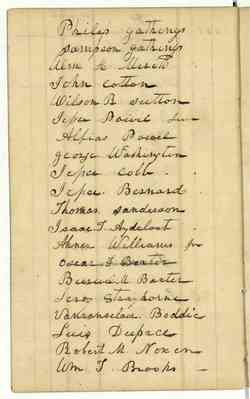 Philip Gathings
Sampson Gathings
Wm H
John Cotton
Wilson R Sutton
Jesse Powel
Alfias Powel
George Washington
Jesse Cobb.
Jesse. Bernard.
Thomas Sanderson
Isaac T Aydelout
Abner Williams jr
Oscar J Baxter
A Baxter
Strayhorne
Vanranselaer Boddie
Luis Dupree
Robert M. Noxen
Wm T. Brooks –